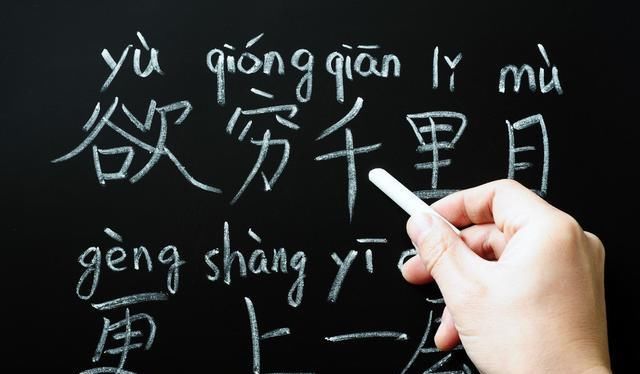 yù qióng qiān lǐ mù
欲穷千里目
gèng shàng yī
更上一